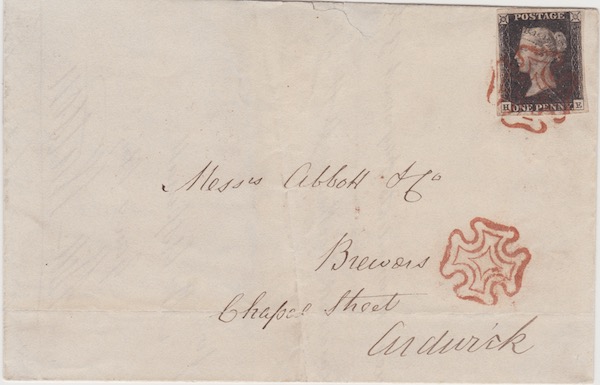 POSTAGE
H ONE PENNY E
Messrs Abbott & Co
Brewers
Chapel Street
Ardwick